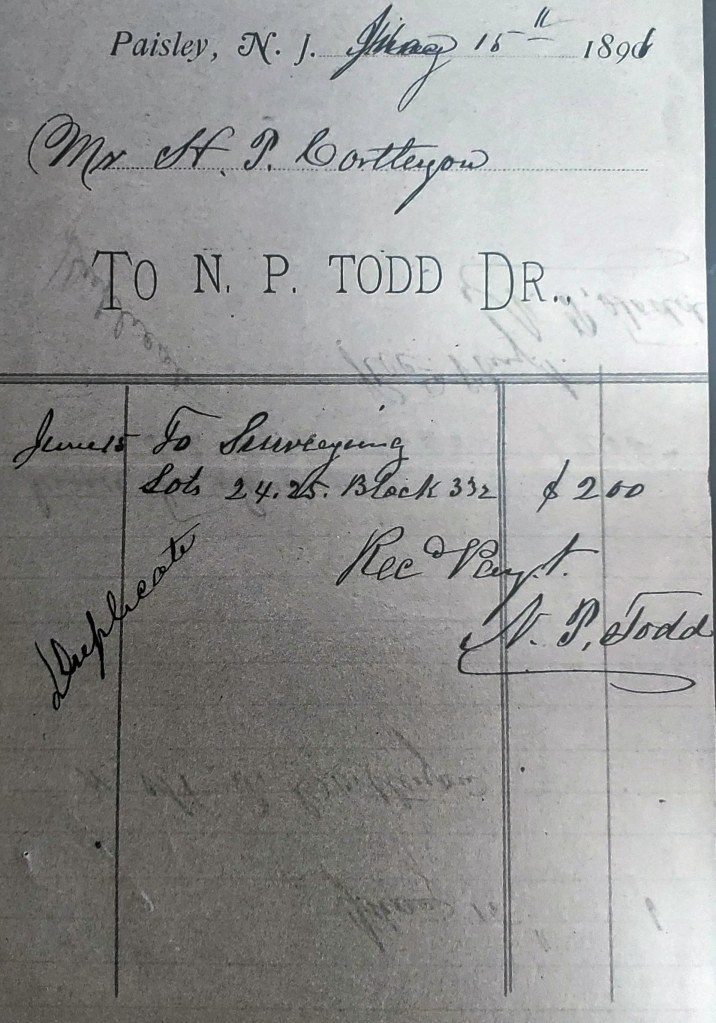 Paisley, N. J. 15th 189
Mr H. P.
TO N. P. TODD DR..
June 15 To Surveying
Lots 24.25. Block 332 $ 2 00
Recd Payt.
N. P. Todd
Duplicate